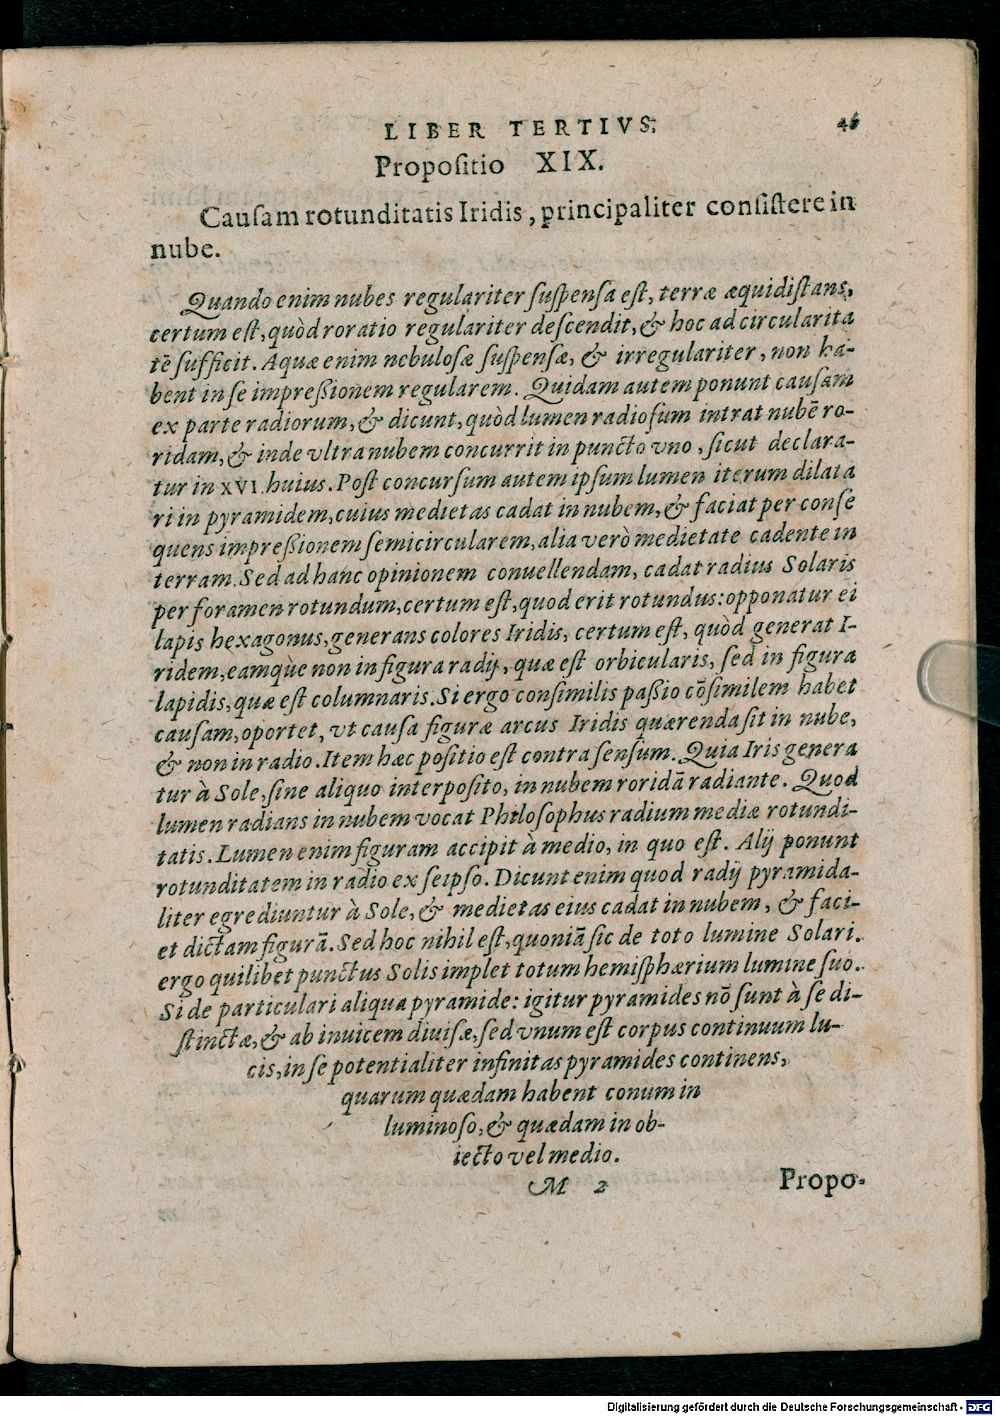 LIBER TERTIVS. 46
Propositio XIX.
Causam rotunditatis Iridis, principaliter consistere in
nube.
Quando enim nubes regulariter suspensa est, terræ æquidistans,
certum est, quòd roratio regulariter descendit, & hoc ad circularita
tē sufficit. Aquæ enim nebulosæ suspensæ, & irregulariter, non ha-
bent in se impreßionem regularem. Quidam autem ponunt causam
ex parte radiorum, & dicunt, quòd lumen radiosum intrat nubē ro-
ridam, & inde vltra nubem concurrit in puncto vno, sicut declara-
tur in XVI. huius. Post concursum autem ipsum lumen iterum dilata
ri in pyramidem, cuius medietas cadat in nubem, & faciat per conse
quens impreßionem semicircularem, alia verò medietate cadente in
terram. Sed ad hanc opinionem conuellendam, cadat radius Solaris
per foramen rotundum, certum est, quod erit rotundus: opponatur ei
lapis hexagonus, generans colores Iridis, certum est, quòd generat I-
ridem, eamquè non in figura radij, quæ est orbicularis, sed in figura
lapidis, quæ est columnaris. Si ergo consimilis paßio cōsimilem habet
causam, oportet, vt causa figuræ arcus Iridis quærenda sit in nube,
& non in radio. Item hæc positio est contra sensum. Quia Iris genera
tur à Sole, sine aliquo interposito, in nubem roridā radiante. Quod
lumen radians in nubem vocat Philosophus radium mediæ rotundi-
tatis. Lumen enim figuram accipit à medio, in quo est. Alij ponunt
rotunditatem in radio ex seipso. Dicunt enim quod radij pyramida-
liter egrediuntur à Sole, & medietas eius cadat in nubem, & faci-
et dictam figurā. Sed hoc nihil est, quoniā sic de toto lumine Solari.
ergo quilibet punctus Solis implet totum hemisphærium lumine suo.
Si de particulari aliqua pyramide: igitur pyramides nō sunt à se di-
stinctæ, & ab inuicem diuisæ, sed vnum est corpus continuum lu-
cis, in se potentialiter infinitas pyramides continens,
quarum quædam habent conum in
luminoso, & quædam in ob-
iecto vel medio.
M 2 Propo-
Digitalisierung gefördert durch die Deutsche Forschungsgemeinschaft - DFG